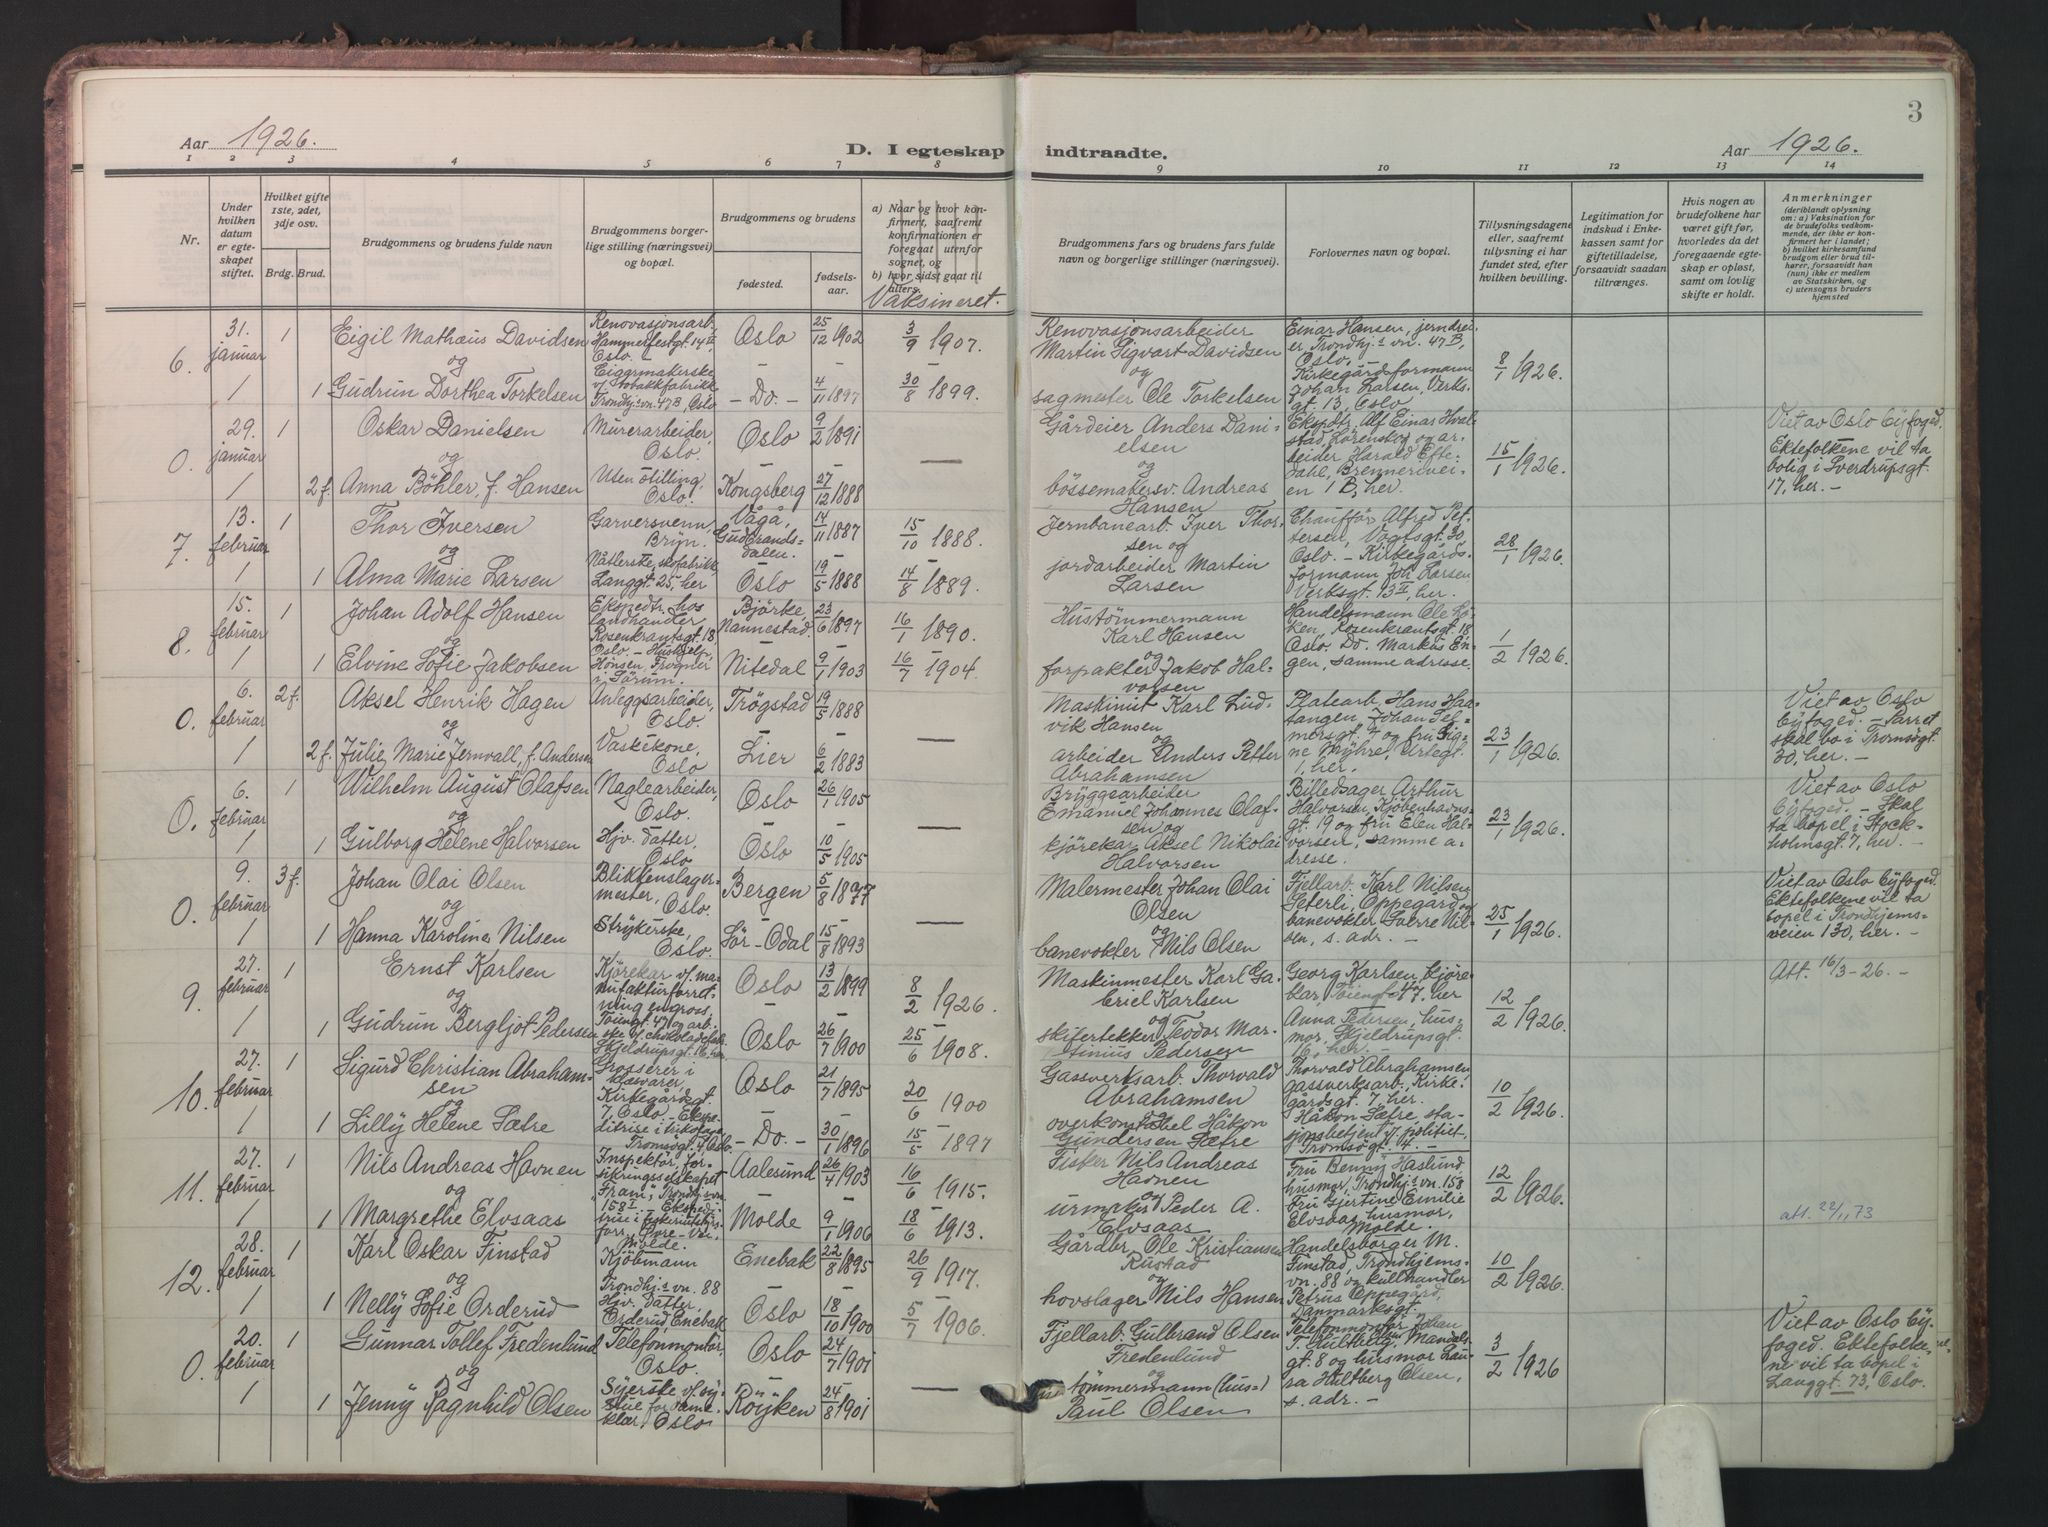 3
Aar 1926.
D. I egteskap indtraadte.
Aar 1926.
1 2 3 4 5 6 7 8 9 10 11 12 13 14
Nr.
Under hvilken datum er egteskapet stiftet.
Hvilket gifte 1ste, 2det, 3dje osv.
Brdg. Brud.
Brudgommens og brudens fulde navn
Brudgommens borgerlige stilling (næringsvei) og bopæl.
Brudgommens og brudens
fødested.
fødselsaar.
a) Naar og hvor konfirmert, saafremt konfirmationen er foregaat utenfor sognet, og
b) hvor sidst gaat til alters.
Vaksineret.
Brudgommens fars og brudens fars fulde navn og borgerlige stillinger (næringsvei).
Forlovernes navn og bopæl.
Tillysningsdagene eller, saafremt tillysning ei har fundet sted, efter hvilken bevilling.
Legitimation for indskud i Enkekassen samt for giftetilladelse, forsaavidt saadan tiltrænges.
Hvis nogen av brudefolkene har været gift før, hvorledes da det foregaaende egteskap er opløst, samt om lovlig skifte er holdt.
Anmerkninger
(deriblandt oplysning om: a) Vaksination for de brudefolks vedkommende, der ikke er konfirmert her i landet; b) hvilket kirkesamfund brudgom eller brud tilhører, forsaavidt han (hun) ikke er medlem av Statskirken, og c) utensogns bruders hjemsted
6. 31. januar 1
Eigil Mathæus Davidsen
og
1 1 Gudrun Dorthea Torkelsen
Renovasjonsarb. Hammerfestgt. 14 II Oslo. –
v. tobakkfabrikk, Trondhj.s vn. 47 B, Oslo
Oslo 25/12 1902 3/9 1907.
– Do. – 4/11 1897 30/8 1899.
Renovasjonsarbeider
Martin Sigvart Davidsen
og
sagmester Ole Torkelsen
Einar Hansen, jerndreier, Trondhj.s vn. 47 B, Oslo.
Kirkegårdsformann Johan Larsen, Verksgt. 13, Oslo
8/1 1926.
0. 29. januar 1
Oskar Danielsen
og
1 2 f. Anna Böhler, f. Hansen
Murerarbeider, Oslo.
Uten stilling, Oslo.
Oslo 9/2 1891
Kongsberg 27/12 1888
—
Gårdeier Anders Danielsen
og
bössemakersv. Andreas Hansen
Ekspdtr. Alf Einar Hvalstad, Lörenskog og arbeider Harald Eftedahl, Brenneriveien 1 B, her.
15/1 1926.
Viet av Oslo byfoged. Ektefolkene vil ta bolig i Sverdrupsgt. 17, her. –
7. 13. februar 1
Thor Iversen
og
1 1 Alma Marie Larsen
Garversvenn, Bryn.
Nåtlerske, skofabrikk, Langgt. 25, her
Vågå, Gudbrandsdalen. 14/11 1887 15/10 1888.
Oslo 19/5 1888 14/8 1889.
Jernbanearb. Iver Thorsen og
jordarbeider Martin Larsen
Chaufför Alfred Pettersen, Vogtsgt. 30, Oslo. – Kirkegårdsformann Joh. Larsen Verksgt. 13 II, her.
28/1 1926.
8. 15. februar 1
Johan Adolf Hansen
og
1 1 Elvine Sofie Jakobsen
Ekspedtr. hos landhandler, Rosenkrantsgt. 18 Oslo. – Hushjelp, Hönsen, Frogner i Sörum.
Björke, Nannestad. 23/6 1897 16/1 1890.
Nitedal 9/1 1903 16/7 1904.
Hustömmermann
Karl Hansen
og
forpakter Jakob Halvorsen
Handelsmann Ole Löken, Rosenkrantsgt. 18 Oslo. Do. Markus Engen, samme adresse.
1/2 1926.
0. 6. februar 2 f.
Aksel Henrik Hagen
og
1 2 f. Julie Marie Jernvall, f. Andersen
Anleggsarbeider, Oslo.
Vaskekone, Oslo
Trögstad 19/5 1888
Lier 6/2 1883
—
Maskinist Karl Ludvik Hansen
og
arbeider Anders Petter Abrahamsen
Platearb. Hans Haatangen, Johan Selmersgt. 7 og fru Signe Myhre, Urtegt. 1, her.
23/1 1926.
Viet av Oslo byfoged. – Parret skal bo i Tromsögt. 30, her. –
0. 6. februar 1
Wilhelm August Olafsen
og
1 1 Gulborg Helene Halvorsen
Naglearbeider, Oslo.
Hjv. datter, Oslo
Oslo 26/1 1905
Oslo 10/5 1905
—
Bryggearbeider
Emanuel Johannes Olafsen og
kjörekar Aksel Nikolai Halvorsen
Billedsager Arthur Halvorsen, Kjöbenhavnsgt. 19 og fru Elen Halvorsen, samme adresse.
23/1 1926.
Viet av Oslo byfoged. – Skal ta bopel i Stockholmsgt. 7, her. –
0. 9. februar 3 f.
Johan Olai Olsen
og
1 1 Hanna Karoline Nilsen
Blikkenslagermester, Oslo.
Strykerske, Oslo.
Bergen 5/8 1877
Sör-Odal 15/8 1893
—
Malermester Johan Olai Olsen
og
banevokter Nils Olsen
Fjellarb. Karl Nilsen, Seterli, Oppegård og banevokter Sverre Nilsen, s. adr. –
25/1 1926.
Viet av Oslo byfoged. Ektefolkene vil ta bopel i Trondhjemsveien 130, her. –
9. 27. februar 1
Ernst Karlsen
og
1 1 Gudrun Bergljot Pedersen
Kjörekar v. manufakturforretning engross, Töiengt. 47 og arb.ske v. chokoladefabr. Skjeldrupsgt. 16, her.
Oslo 13/2 1899 8/2 1926.
Oslo 26/7 1900 25/6 1908.
Maskinmester Karl Gabriel Karlsen
og
skifertekker Teodor Marsinius Pedersen
Georg Karlsen, kjörekar, Töiengt. 47, her
Anna Pedersen, husmor, Skjeldrupsgt. 16, her.
12/2 1926.
Att. 16/3-26. –
10. 27. februar 1
Sigurd Christian Abrahamsen
og
1 1 Lilly Helene Sætre
Grosserer i
Kirkegårdsgt. 7, Oslo – Ekspeditrise i trikotage, Tromsögt. Oslo.
Oslo 21/7 1895 20/6 1900
– Do. – 30/1 1896 15/5 1897
Gassverksarb. Thorvald Abrahamsen
overkonstabel Håkon Gundersen Sætre
Thorvald Abrahamsen, gassverksarb., Kirkegårdsgt. 7, her.
Håkon Sætre, stasjonsbetjent v. politiet, Tromsögt. 14. –
10/2 1926.
11. 27. februar 1
Nils Andreas Havnen
og
1 1 Margrethe Elvsaas
Inspektör, forsikringsselskapet "Fram", Trondhj.s vn. 158 I. – Molde.
Aalesund 26/4 1903 16/6 1915.
Molde 9/1 1906 18/6 1913.
Fisker Nils Andreas Havnen
og
urmaker Peder A. Elvsaas
Fru Benny Haslund, husmor, Trondhj.s vn. 158
Fru Gjertine Emilie Elvsaas, husmor, Molde.
12/2 1926.
att. 22/11 73
12. 28. februar 1
Karl Oskar Finstad
og
1 1 Nelly Sofie Orderud
Kjöbmann Trondhj.s vn. 88
Hjv. datter, Orderud, Enebak
Enebak 22/8 1895 26/9 1917.
Oslo 18/10 1900 5/7 1906.
Gårdbr. Ole Kristiansen Rustad
og
hovslager Nils Hansen
Handelsborger M. Finstad, Trondhjemsvn. 88 og kullhandler Petrus Oppegård, Danmarksgt.
10/2 1926.
0. 20. februar 1
Gunnar Tollef Fredenlund
og
1 1 Jenny Ragnhild Olsen
Telefonmontör, Oslo.
Syerske v. systue for dameklær, Oslo.
Oslo 24/7 1901
Röyken 24/8 1901
—
Fjellarb. Gulbrand Olsen Fredenlund
og
tömmermann (hus-) Paul Olsen
Telefonmontör Johan T. Hultberg Olsen, Mandalsgt. 8 og husmor Laura Hultberg Olsen, s. adr. –
3/2 1926
Viet av Oslo byfoged. Ektefolkene vil ta bopel i Langgt. 73, Oslo.